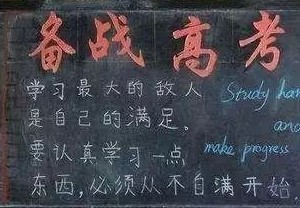 备战高考
学习最大的敌人
是自己的满足。
要认真学习一点
东西，必须从不自满开始
Study har
and
make progress